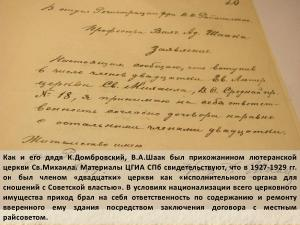 В отдел Регистрации при
Профессора Вильг. Ад. Шаака
Заявление
Настоящим сообщаю, что вступив
в число членов двадцатки Ев. Лютер.
церкви Св. Михаила, В.О. Средний пр.
№ 18, я принимаю на себя ответст-
венность согласно договора наравне
с остальными членами двадцатки.
Жительство имею
Как и его дядя К.Домбровский, В.А.Шаак был прихожанином лютеранской
церкви Св.Михаила. Материалы ЦГИА СПб свидетельствуют, что в 1927-1929 гг.
он был членом «двадцатки» церкви как «исполнительного органа для
сношений с Советской властью». В условиях национализации всего церковного
имущества приход брал на себя ответственность по содержанию и ремонту
вверенного ему здания посредством заключения договора с местным
райсоветом.